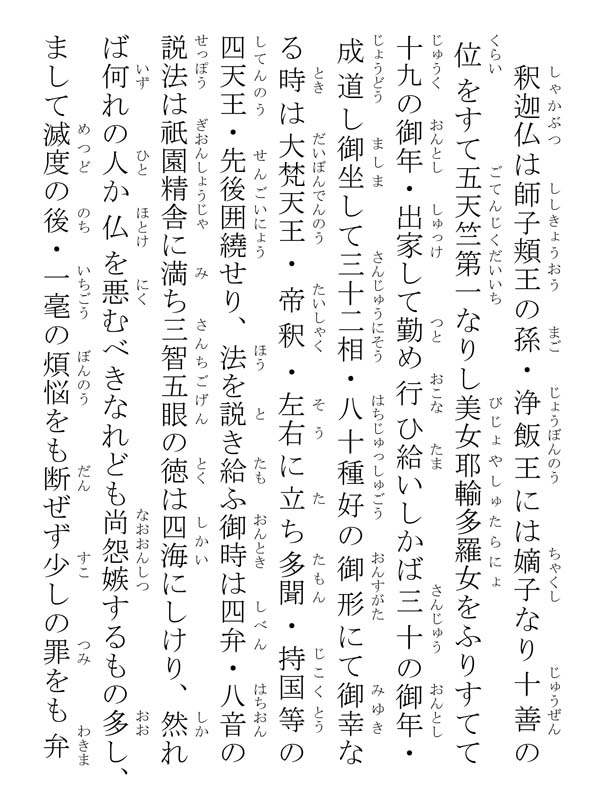 釈迦仏は師子頬王の孫・浄飯王には嫡子なり十善の
位をすて五天竺第一なりし美女耶輸多羅女をふりすてて
十九の御年・出家して勤め行ひ給いしかば三十の御年・
成道し御坐して三十二相・八十種好の御形にて御幸な
る時は大梵天王・帝釈・左右に立ち多聞・持国等の
四天王・先後囲繞せり、法を説き給ふ御時は四弁・八音の
説法は祇園精舎に満ち三智五眼の徳は四海にしけり、然れ
ば何れの人か仏を悪むべきなれども尚怨嫉するもの多し、
まして滅度の後・一毫の煩悩をも断ぜず少しの罪をも弁